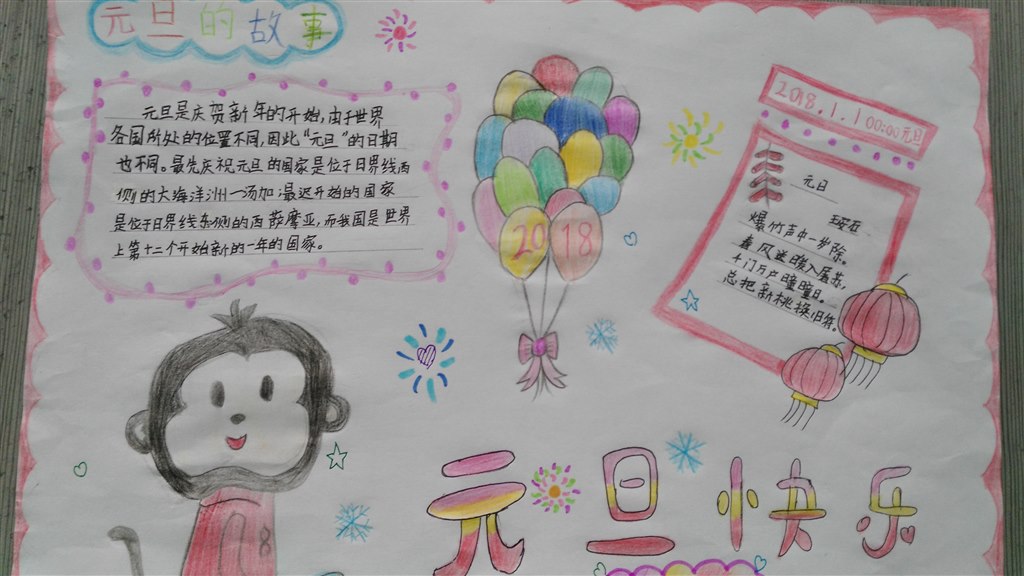 元旦的故事
元旦是庆贺新年的开始,由于世界
各国所处的位置不同,因此“元旦”的日期
也不同。最先庆祝元旦的国家是位于日界线西
侧的大海洋洲一汤加;最迟开始的国家
是位于日界线东侧的西萨摩亚,而我国是世界
上第十二个开始新的一年的国家。
2018
2018.1.1 00:00元旦
元日
爆竹声中一岁除。
春风送暖入屠苏,
千门万户曈曈日。
总把新桃换旧符。
18
元旦快乐